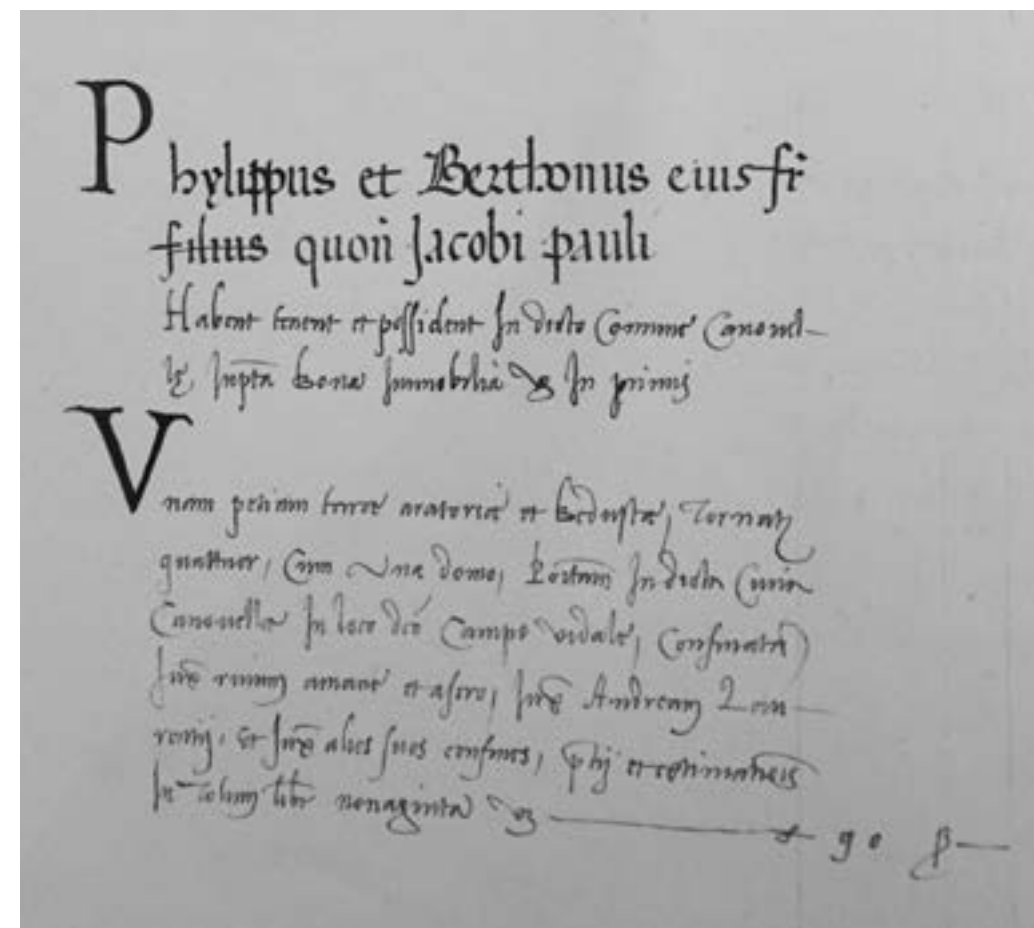 Phylippus et Berthonus eius fr
filius quon Jacobi pauli
Habent tenent et possident In dicto Comune Canouel-
le, Infta bona Immobilia In primis
Vnam petiam terre aratorie et tornat
quattuor, Cum Vna domo, In dicta Curia
Canouelle In loco dco Campo vidale, Confinata
amane et a sero, Andream
et alios suos confines, et extimationis
In totum libr nonaginta 90